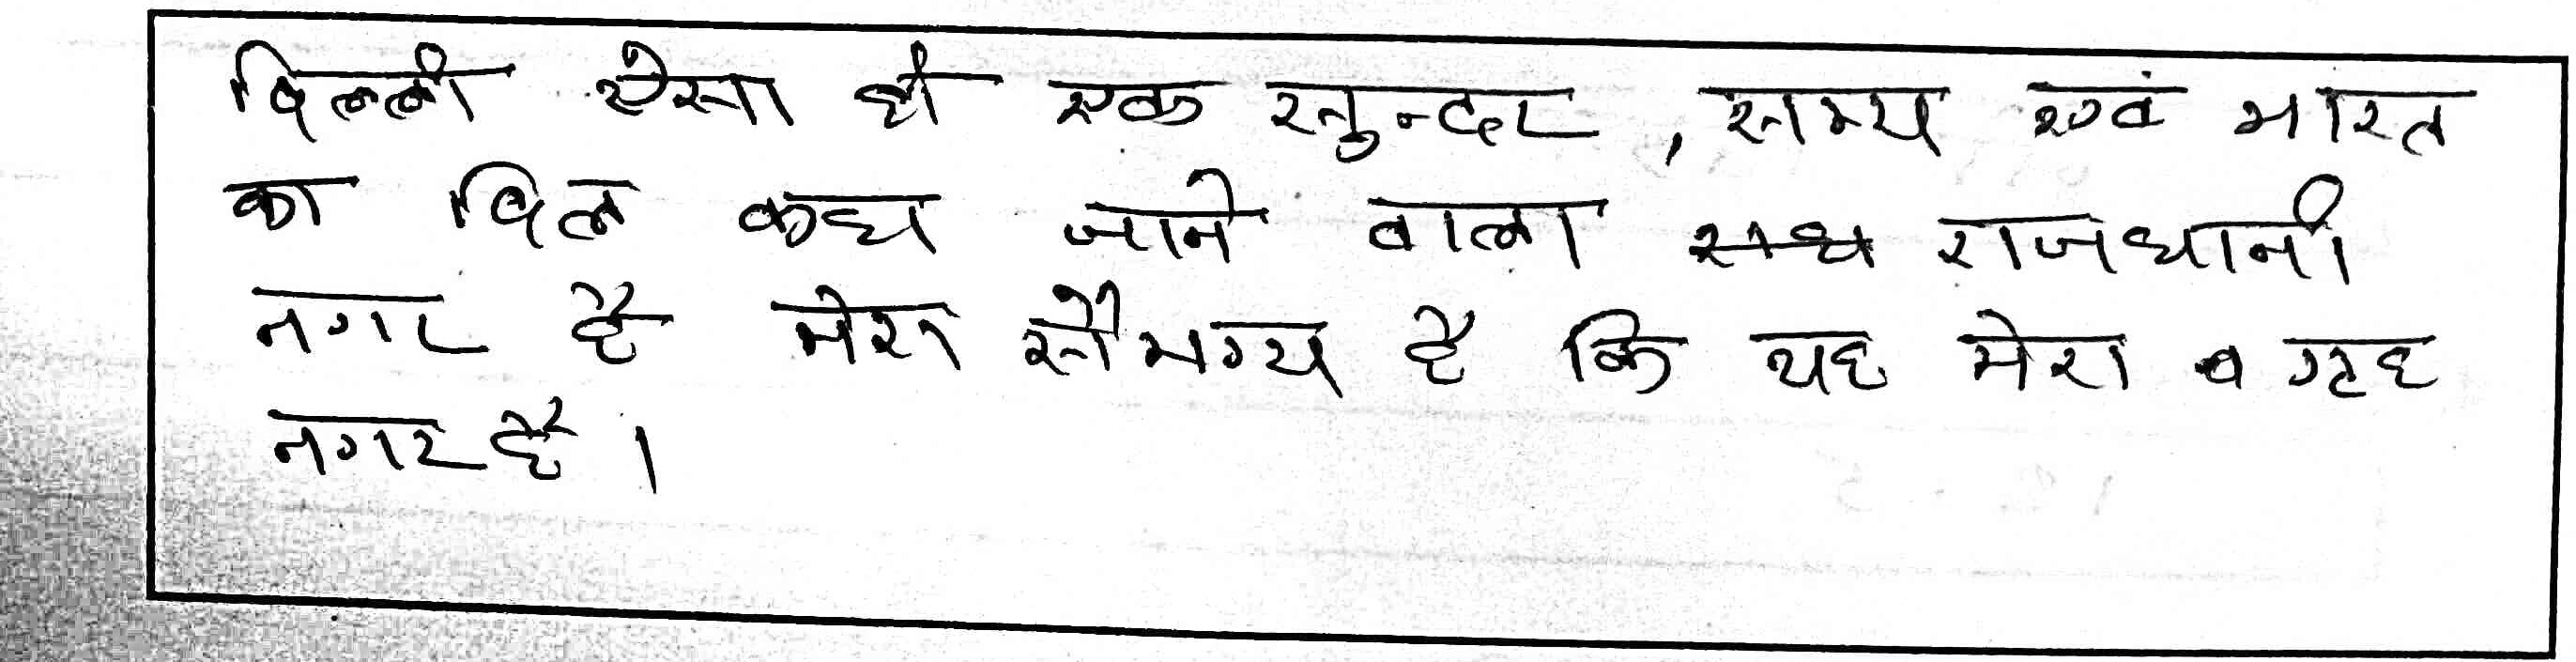 दिल्ली ऐसा ही एक सुन्दर, सभ्य एवं भारत
का दिल कहा जाने वाला राजधानी
नगर है मेरा सौभग्य है कि यह मेरा गृह
नगर है।